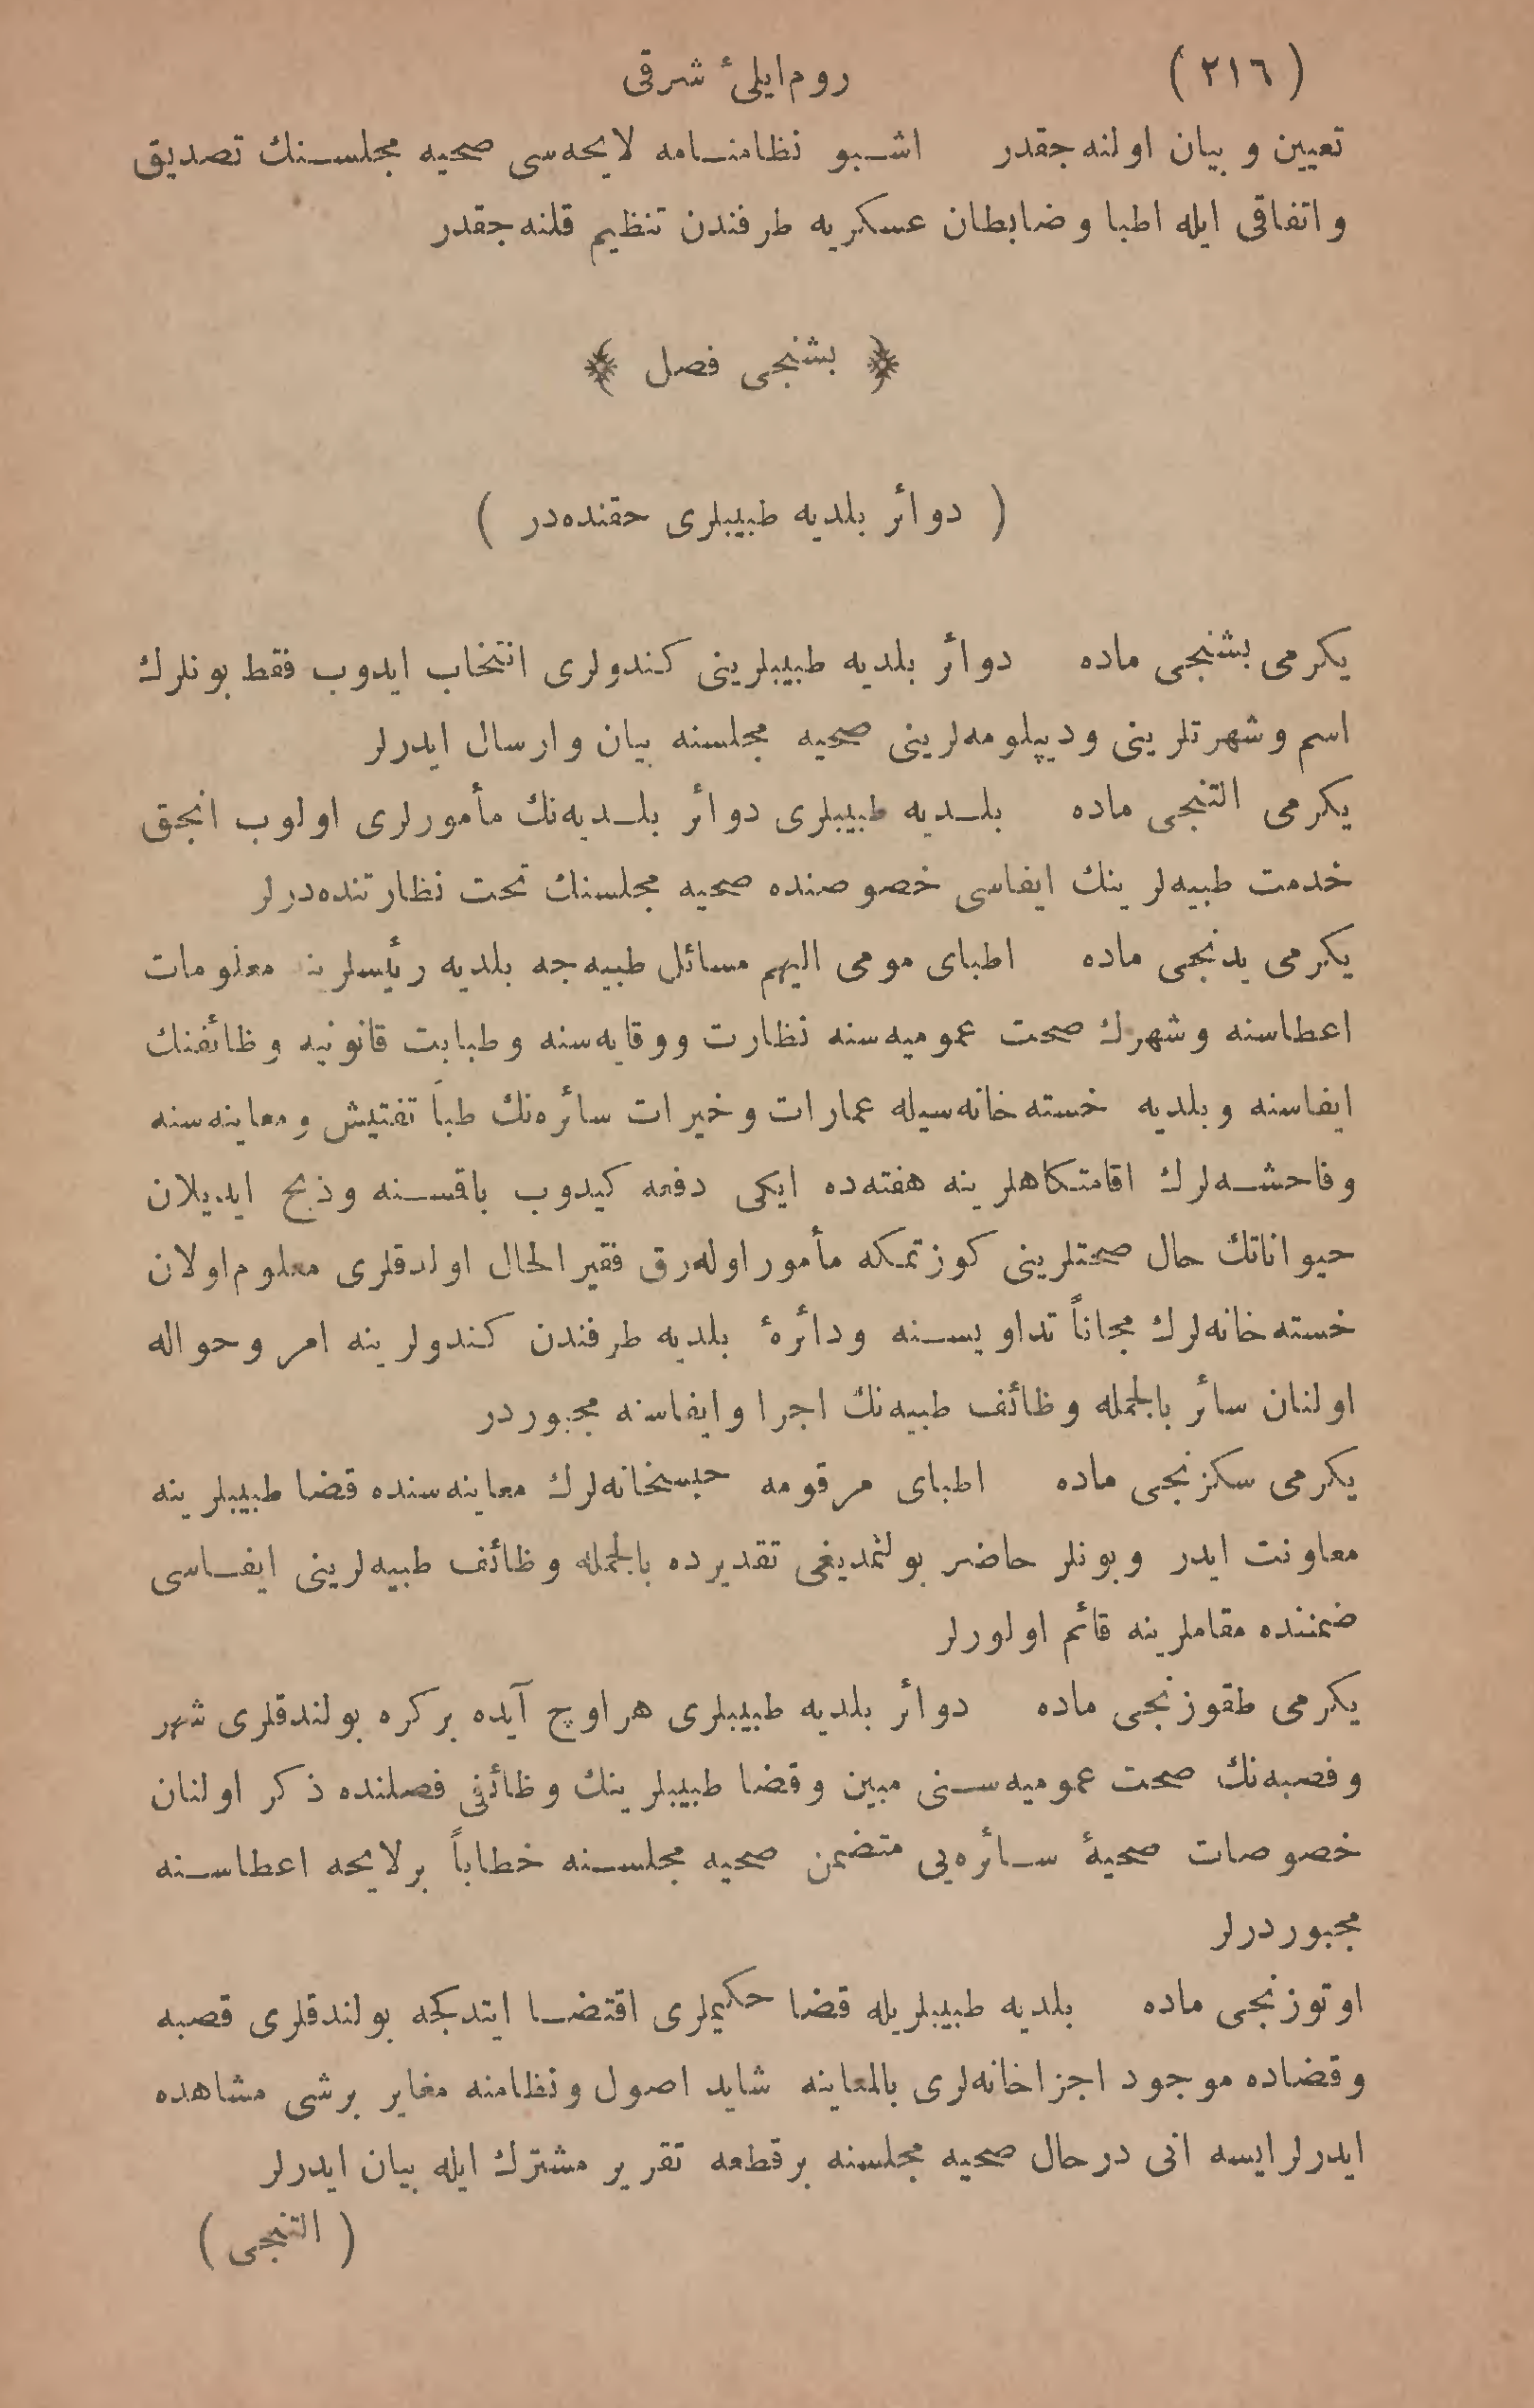 ( ٢١٦ ) روم‌ایلئ شرقی
تعیین و بیان اولنه‌جقدر اشبو نظامنامه لایحه‌سی صحیه مجلسنك تصدیق
و اتفاقی ایله اطبا و ضابطان عسکریه طرفندن تنظیم قلنه‌جقدر
﴿ بشنجی فصل ﴾
( دوائر بلدیه طبیبلری حقنده‌در )
یکرمی بشنجی ماده دوائر بلدیه طبیبلرینی کندولری انتخاب ایدوب فقط بونلرك
اسم و شهرتلرینی و دیپلومه‌لرینی صحیه مجلسنه بیان و ارسال ایدرلر
یکرمی التنجی ماده بلدیه طبیبلری دوائر بلدیه‌نك مأمورلری اولوب انجق
خدمت طبیه‌لرینك ایفاسی خصوصنده صحیه مجلسنك تحت نظارتنده‌درلر
یکرمی یدنجی ماده اطبای مومی الیهم مسائل طبیه‌جه بلدیه رئیسلرینه معلومات
اعطاسنه و شهرك صحت عمومیه‌سنه نظارت و وقایه‌سنه و طبابت قانونیه وظائفنك
ایفاسنه و بلدیه خسته‌خانه‌سیله عمارات و خیرات سائره‌نك طباً تفتیش و معاینه‌سنه
و فاحشه‌لرك اقامتكاهلرینه هفته‌ده ایکی دفعه کیدوب باقسنه و ذبح ایدیلان
حیواناتك حال صحتلرینی کوزتمکه مأمور اوله‌رق فقیر الحال اولدقلری معلوم اولان
خسته‌خانه‌لرك مجاناً تداویسنه و دائرهٔ بلدیه طرفندن کندولرینه امر و حواله
اولنان سائر بالجمله وظائف طبیه‌نك اجرا و ایفاسنه مجبوردر
یکرمی سکزنجی ماده اطبای مرقومه حبسخانه‌لرك معاینه‌سنده قضا طبیبلرینه
معاونت ایدر و بونلر حاضر بولنمدیغی تقدیرده بالجمله وظائف طبیه‌لرینی ایفاسی
ضمننده مقاملرینه قائم اولورلر
یکرمی طقوزنجی ماده دوائر بلدیه طبیبلری هر اوچ آیده بر کره بولندقلری شهر
و قصبه‌نك صحت عمومیه‌سنی مبین و قضا طبیبلرینك وظائفی فصلنده ذکر اولنان
خصوصات صحیهٔ سائره‌یی متضمن صحیه مجلسنه خطاباً بر لایحه اعطاسنه
مجبوردرلر
اوتوزنجی ماده بلدیه طبیبلریله قضا حکیملری اقتضا ایتدکجه بولندقلری قصبه
و قضاده موجود اجزاخانه‌لری بالمعاینه شاید اصول و نظامنه مغایر بر شی مشاهده
ایدرلر ایسه انی درحال صحیه مجلسنه بر قطعه تقریر مشترك ایله بیان ایدرلر
( التنجی )